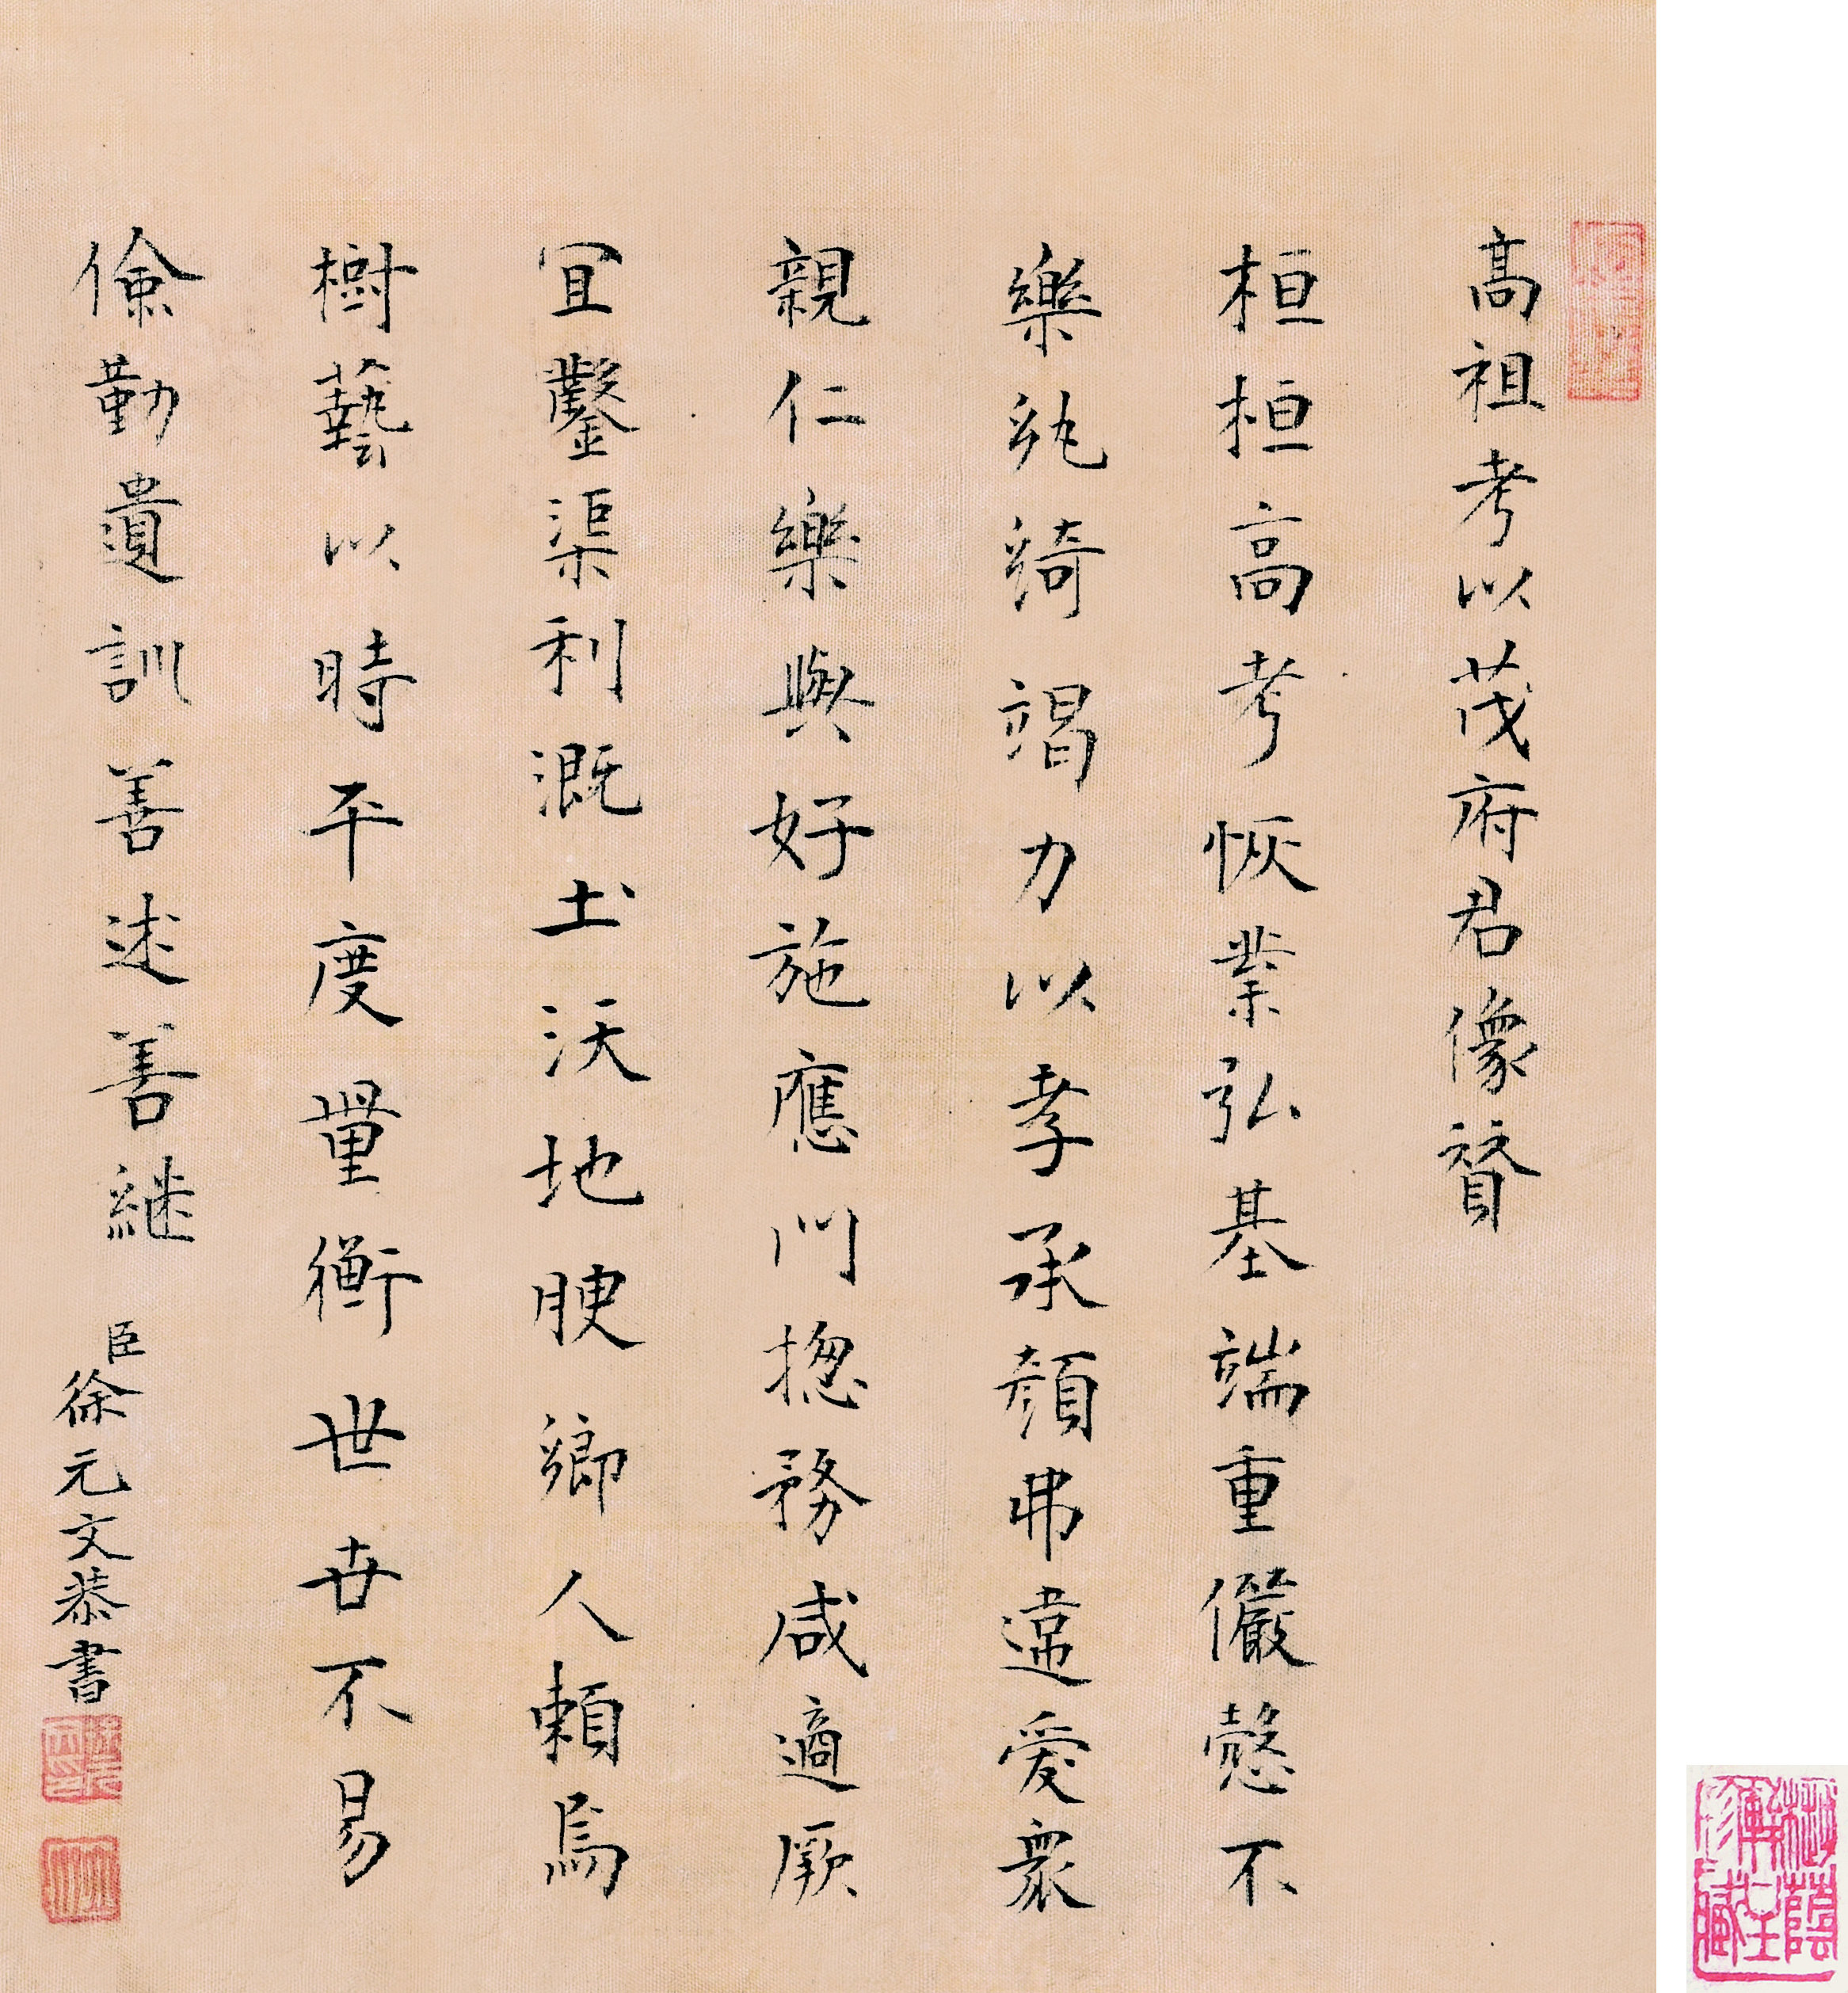 高祖考以茂府君像贊
桓桓高考恢業弘基端重儼愨不
樂紈綺竭力以孝承顏弗違愛衆
親仁樂與好施應門揔務咸適厥
冝鑿渠利溉土沃地腴鄉人賴焉
樹藝以時平度量衡世世不易
儉勤遺訓善述善継
臣徐元文恭書